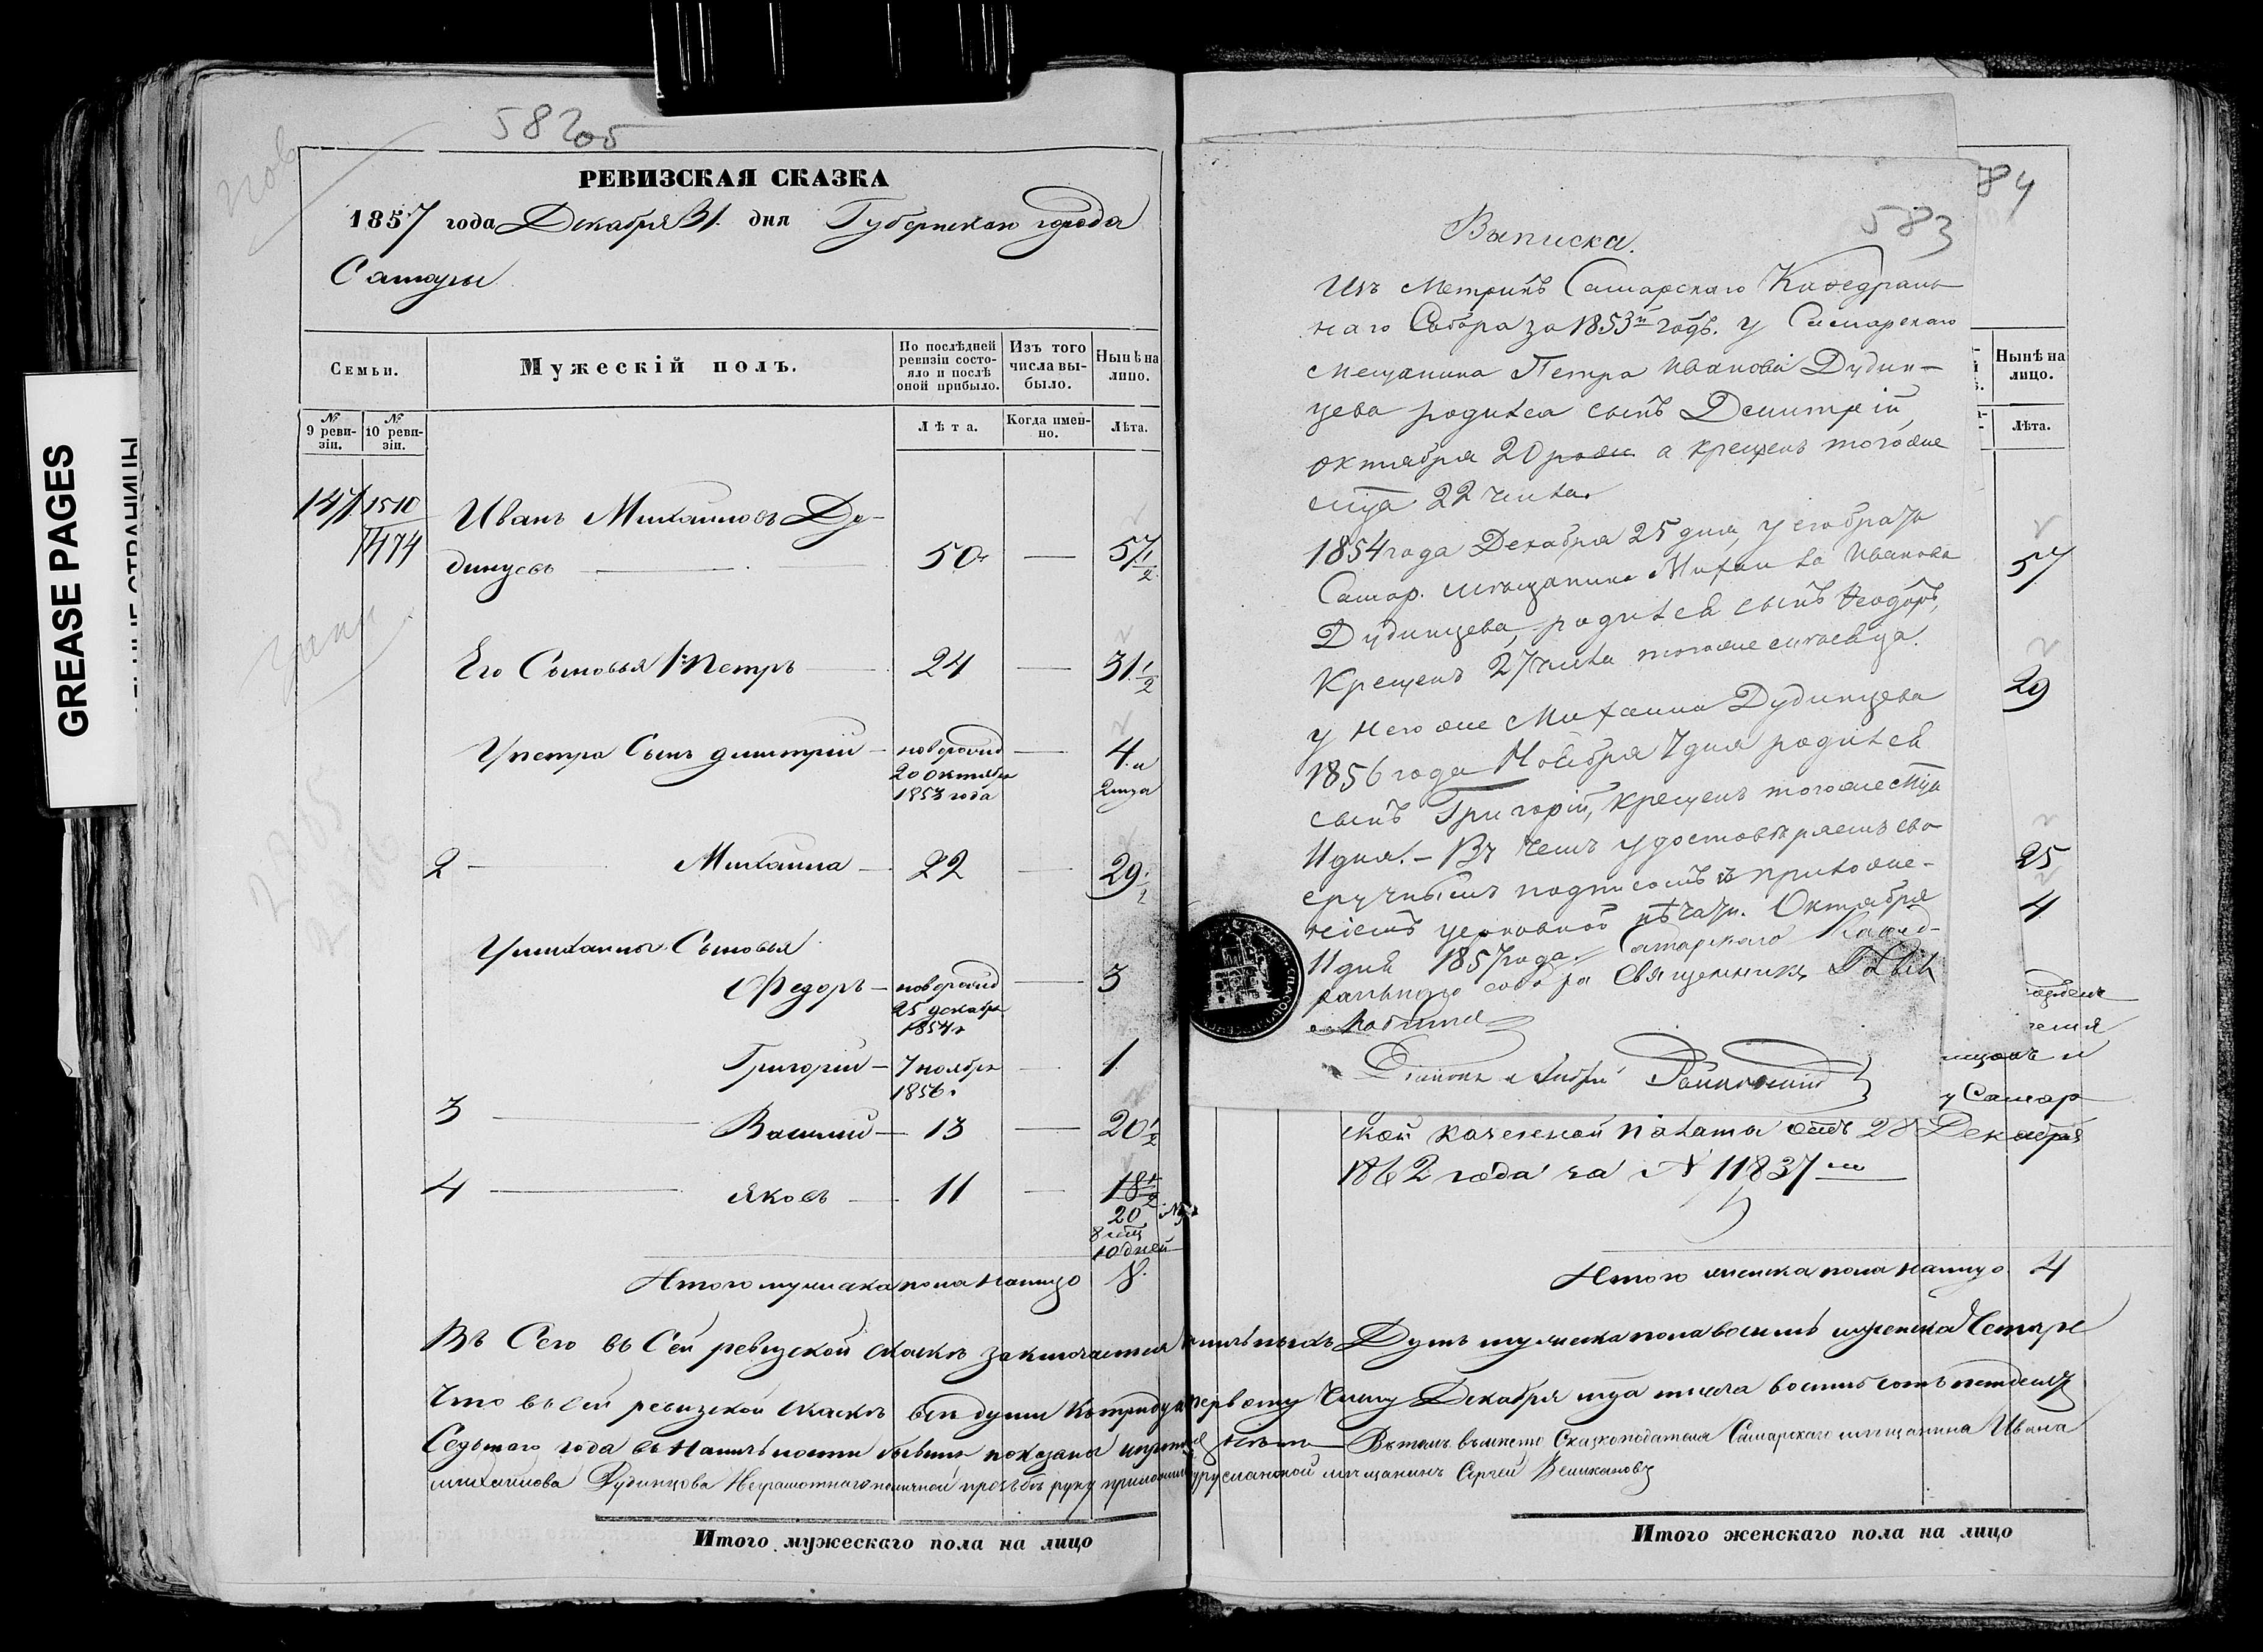 582об
РЕВИЗСКАЯ СКАЗКА
1857 года Декабря 31. дня Губернскаго города
Самары
Семьи.
Мужескій полъ.
По послѣдней ревизіи состояло и послѣ оной прибыло.
Изъ того числа выбыло.
Нынѣ на лицо.
№ 9 ревизіи.
№ 10 ревизіи.
Лѣта.
Когда именно.
Лѣта.
1471 1510
1474
Иванъ Михаиловъ Ду-
динцевъ 50 — 57 1/2
Его Сыновья 1й Петръ 24 — 31 1/2
У петра Сынъ дмитрій — новорожд 20 октября 1853 года — 4. и 2 мца
2 — Михаила — 22 — 29 1/2
У михаилы Сыновья
Федоръ — новорожд 25 декабря 1854 г — 3
Григорій — 7 ноября 1856 г — 1
3 — Василій — 13 — 20 1/2
4 — Яковъ — 11 — 18 1/2
20
8 мц
10 дней
Итого мужеска пола налицо 8.
GREASE PAGES
84
583
Выписка.
Изъ Метрикъ Самарскаго Кафедраль-
наго Собора за 1853й годъ. У Самарскаго
мещанина Петра Иванова Дудин-
цева родился сынъ Димитрій,
октября 20 а крещенъ тогоже
мца 22 числа.
1854 года Декабря 25 дня, у его брата
Самар. мѣщанина Михаила Иванова
Дудинцева, родился сынъ Ѳеодоръ,
Крещенъ 27 числа тогоже месяца.
У него же Михаила Дудинцева
1856 года Ноября 7 дня родился
сынъ Григорій, крещенъ тогоже мца
11 дня. – Въ чемъ удостовѣряемъ сво-
еручнымъ подписомъ съ приложе-
ніемъ церковной печати. Октября
11 дня 1857 года. Самарскаго Кафед-
ральнаго собора Священникъ
Нынѣ на лицо.
Лѣта.
57
29
25
4
у Самар
ской казенной палаты отъ 28 Декабря
1862 года за № 11837
Итого женска пола налицо 4
Въ Сего въ Сей ревизской сказкѣ заключается наличныхъ Душъ мужеска пола восимь женска Четыре
Что въ сей ревизской сказкѣ всѣ души къ тридцать первому Числу Декабря мца тысеча восимь сотъ петдесятъ
Седьмаго года въ наличьности бывшие показаны и пропис нѣтъ Въ томъ вместо Сказкоподателя Самарскаго мещанина Ивана
михаилова Дудинцова Неграмотнаго по личной прозьбѣ руку приложилъ мещанинъ Сергей Великановъ
Итого мужескаго пола на лицо
Итого женскаго пола на лицо